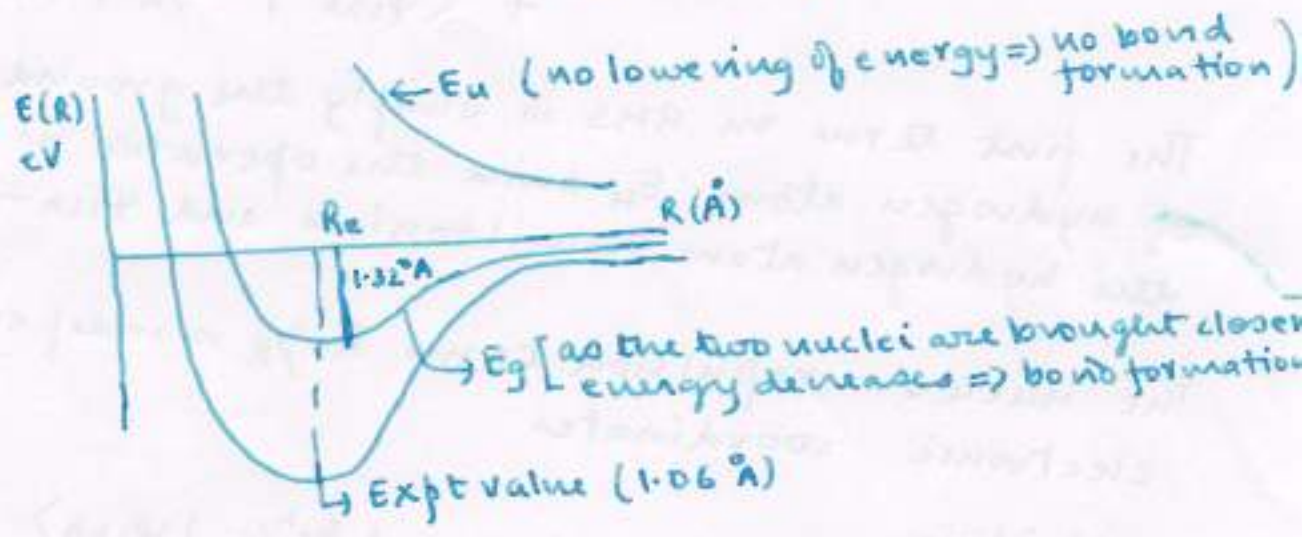 ← Eu (no lowering of energy => no bond formation)
E(R)
eV
Re
R(Å)
1.32°A
→ Eg [as the two nuclei are brought closer
energy decreases => bond formation
↳ Expt value (1.06 Å)